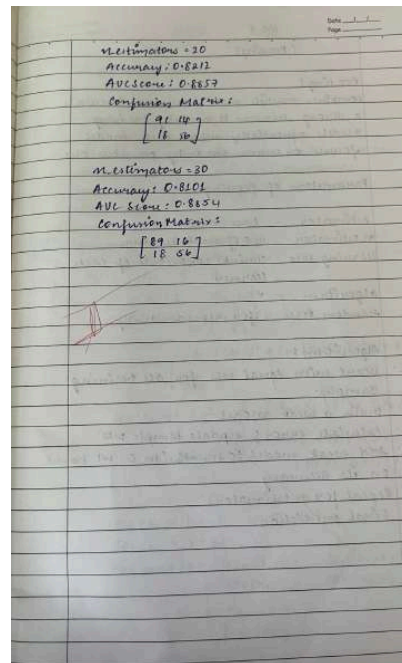 Date
Page
n_estimators = 20
Accuracy : 0.8212
AUC Score : 0.8857
Confusion Matrix :
[ 91 14
18 56 ]
n_estimators = 30
Accuracy : 0.8101
AUC Score : 0.8854
Confusion Matrix :
[ 89 16
18 56 ]